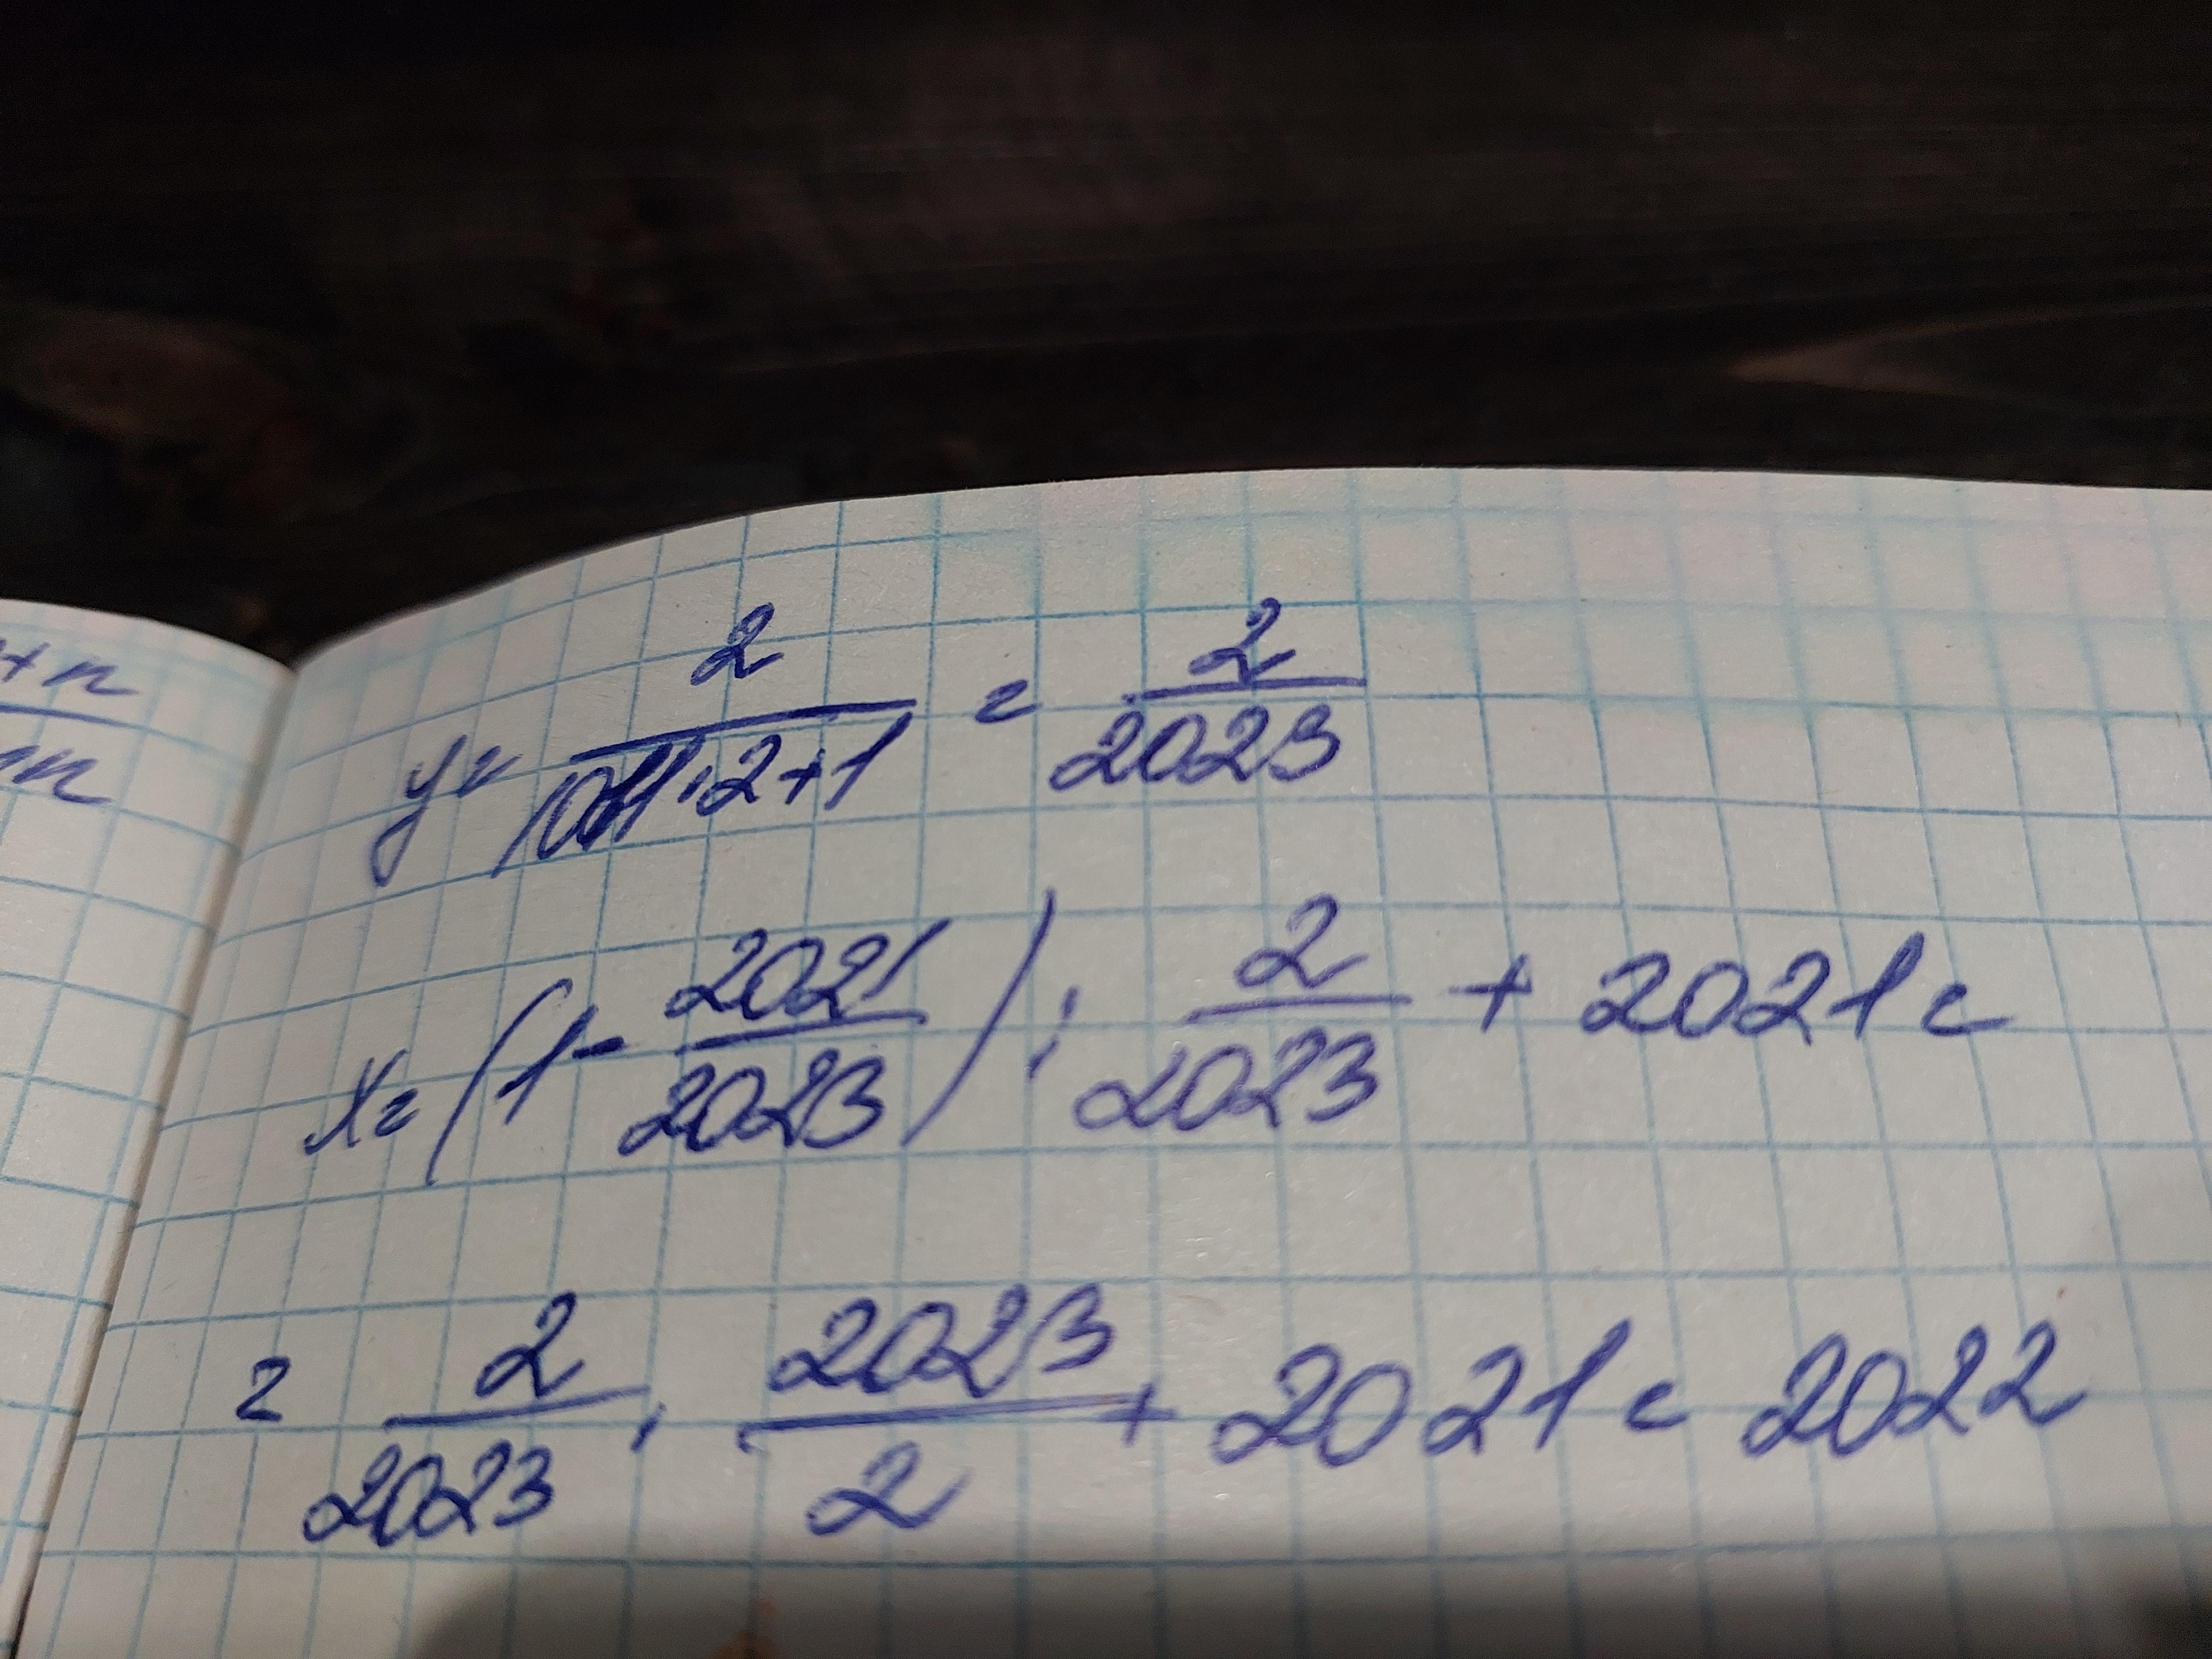 +n
n
y = 2/(1011·2+1) = 2/2023
x = (1 - 2021/2023) : 2/2023 + 2021 =
= 2/2023 · 2023/2 + 2021 = 2022